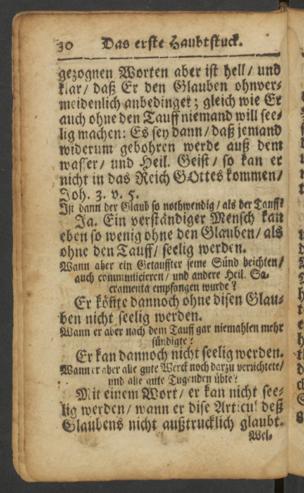 30 Das erste Haubtstuck.
gezognen Worten aber ist hell/ und
klar/ daß Er den Glauben ohnver-
meidenlich anbedinget; gleich wie Er
auch ohne den Tauff niemand will see-
lig machen: Es sey dann/ daß jemand
widerum gebohren werde auß dem
wasser/ und Heil. Geist/ so kan er
nicht in das Reich GOttes kommen/
Joh. 3. v. 5.
Ist dann der Glaub so nothwendig/ als der Tauff?
Ja. Ein verständiger Mensch kan
eben so wenig ohne den Glauben/ als
ohne den Tauff/ seelig werden.
Wann aber ein Getauffter seine Sünd beichten/
auch communiciren/ und andere Heil. Sa-
cramenta empfangen wurde?
Er könte dannoch ohne disen Glau-
ben nicht seelig werden.
Wann er aber nach dem Tauff gar niemahlen mehr
sündigte?
Er kan dannoch nicht seelig werden.
Wann er aber alle gute Werck noch darzu verrichtete/
und alle gute Tugenden übte?
Mit einem Wort/ er kan nicht see-
lig werden/ wann er dise Articul deß
Glaubens nicht außtrucklich glaubt.
Wel-